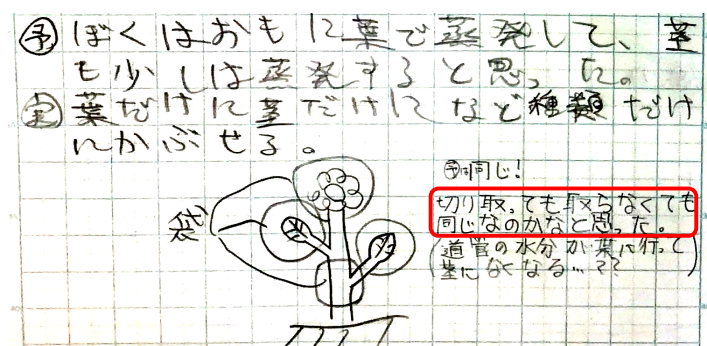 予 ぼくはおもに葉で蒸発して、茎
も少しは蒸発すると思った。
実 葉だけに茎だけになど種類だけ
にかぶせる。
袋
予同じ!
切り取っても取らなくても
同じなのかなと思った。
(道管の水分が葉に行って
茎になくなる…??)